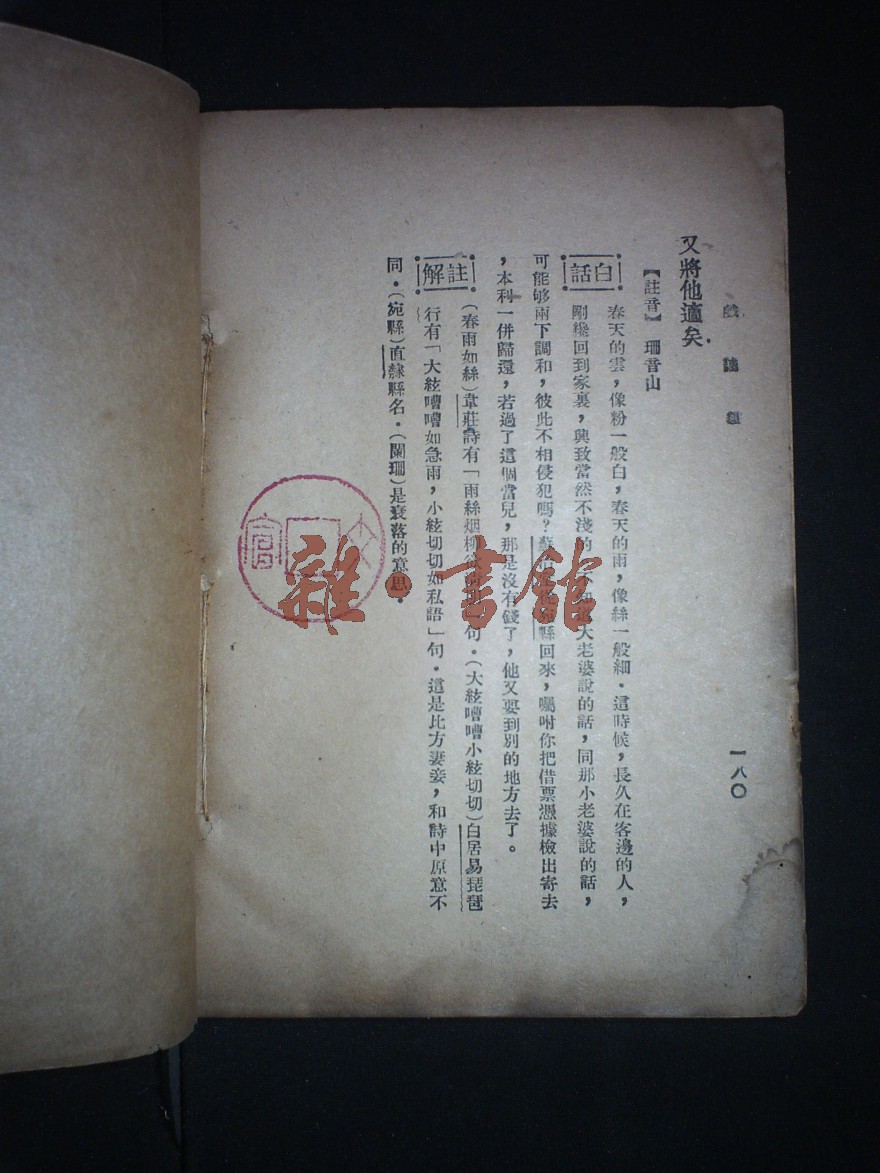 戲謔類
一八〇
又將他適矣.
【註音】 珊音山
白話
春天的雲，像粉一般白，春天的雨，像絲一般細．這時候，長久在客邊的人，
剛纔回到家裏，興致當然不淺的 大老婆說的話，同那小老婆說的話，
可能够兩下調和，彼此不相侵犯嗎？ 縣回來，囑咐你把借票憑據檢出寄去
，本利一併歸還，若過了這個當兒，那是沒有錢了，他又要到別的地方去了。
註解
(春雨如絲)韋莊詩有「雨絲烟柳 」句．(大絃嘈嘈小絃切切)白居易琵琶
行有「大絃嘈嘈如急雨，小絃切切如私語」句．這是比方妻妾，和詩中原意不
同．(宛縣)直隸縣名．(闌珊)是衰落的意思．
雜·書館